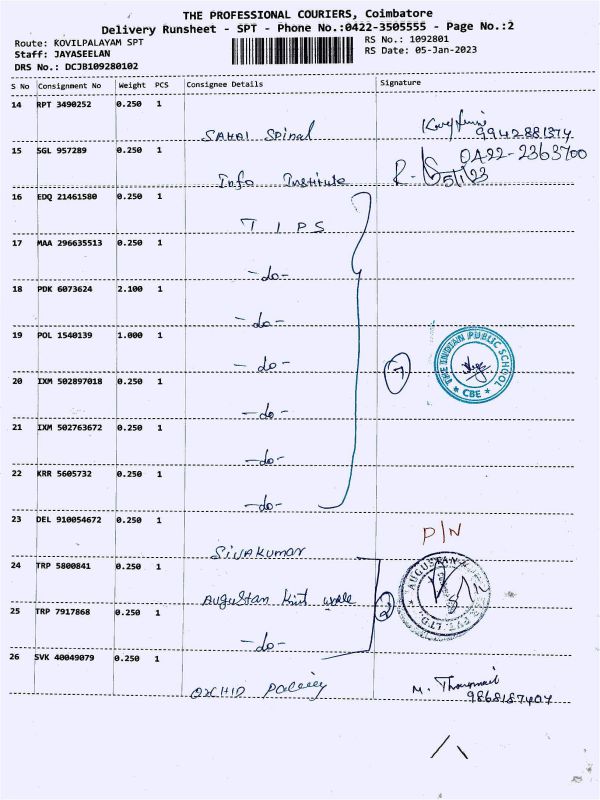 THE PROFESSIONAL COURIERS, Coimbatore
Delivery Runsheet - SPT - Phone No.:0422-3505555 - Page No.:2
Route: KOVILPALAYAM SPT
RS No.: 1092801
Staff: JAYASEELAN
RS Date: 05-Jan-2023
DRS No.: DCJB109280102
S No Consignment No Weight PCS Consignee Details Signature
14 RPT 3490252 0.250 1
SAHAI Spinal 9942881374
15 SGL 957289 0.250 1 0422-2363700
Info Institute R. 5/1/23
16 EDQ 21461580 0.250 1
T I P S
17 MAA 296635513 0.250 1
-do-
18 PDK 6073624 2.100 1
-do-
19 POL 1540139 1.000 1
-do- 7 THE INDIAN PUBLIC SCHOOL * CBE *
20 IXM 502897018 0.250 1
-do-
21 IXM 502763672 0.250 1
-do-
22 KRR 5605732 0.250 1
-do-
23 DEL 910054672 0.250 1 P/N
Sivakumar
24 TRP 5800841 0.250 1
Augustan Knit 2 AUGUSTAN PVT. LTD.
25 TRP 7917868 0.250 1
-do-
26 SVK 40049079 0.250 1
ORCHID M. 9868187404